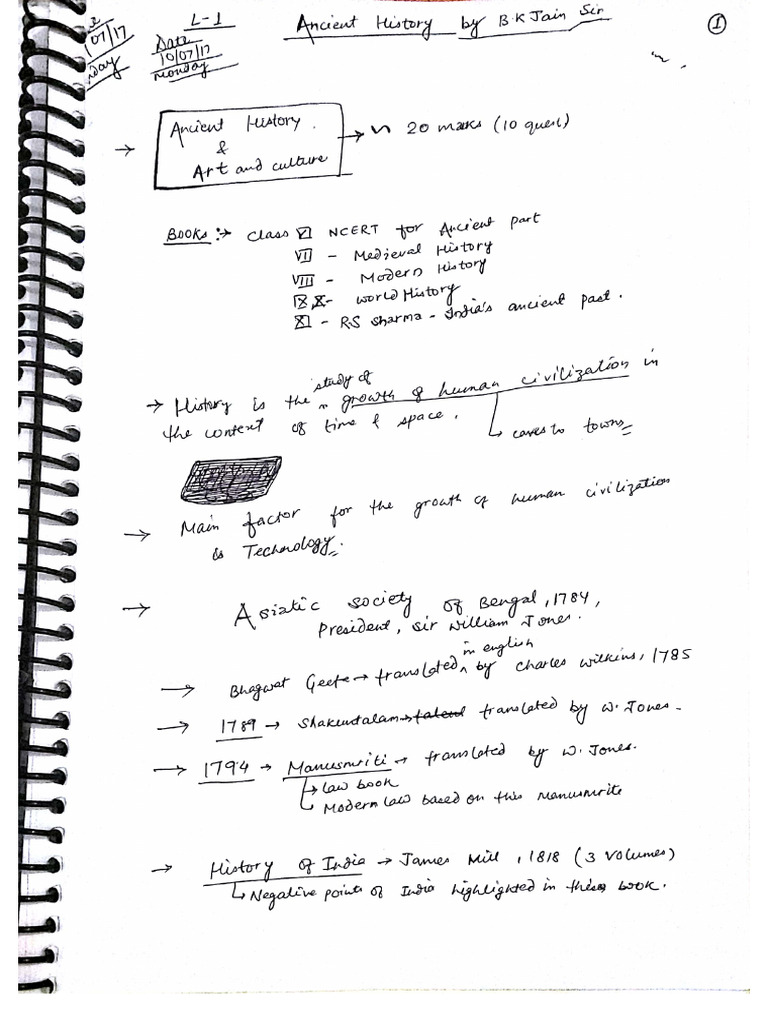 L-1
Ancient History by B.K Jain Sir
①
07/17
Date
10/07/17
Monday
→ Ancient History
&
Art and culture
→ ~ 20 marks (10 quest)
BOOKS :→ Class VI NCERT for Ancient part
VII - Medieval History
VIII - Modern History
IX X - World History
XI - RS Sharma - India's ancient past.
→ History is the study of growth of human civilization in
the context of time & space.
↳ caves to towns
→ Main factor for the growth of human civilization
is Technology.
→ Asiatic society of Bengal, 1784,
President, Sir William Jones.
→ Bhagwat Geete → translated in english by Charles wilkins, 1785
→ 1789 → Shakuntalam → translated by W. Jones.
→ 1794 → Manusmriti → translated by W. Jones.
↳ law book
↳ Modern law based on this Manusmrite
→ History of India → James Mill, 1818 (3 Volumes)
↳ Negative points of India highlighted in this book.